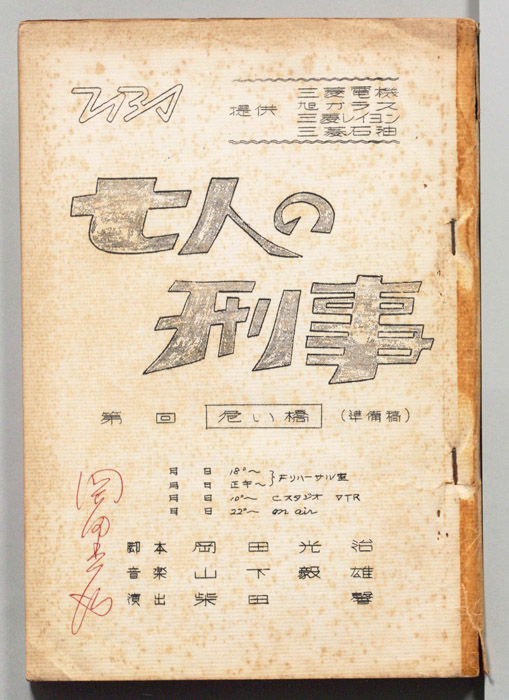 TBS
提供
三菱電機
旭ガラス
三菱レイヨン
三菱石油
七人の
刑事
第 回 危い橋 (準備稿)
月 日 18°~
月 日 正午~ }Fリハーサル室
月 日 10°~ Cスタジオ VTR
月 日 22°~ on air
脚本 岡田光治
音楽 山下毅雄
演出 柴田馨